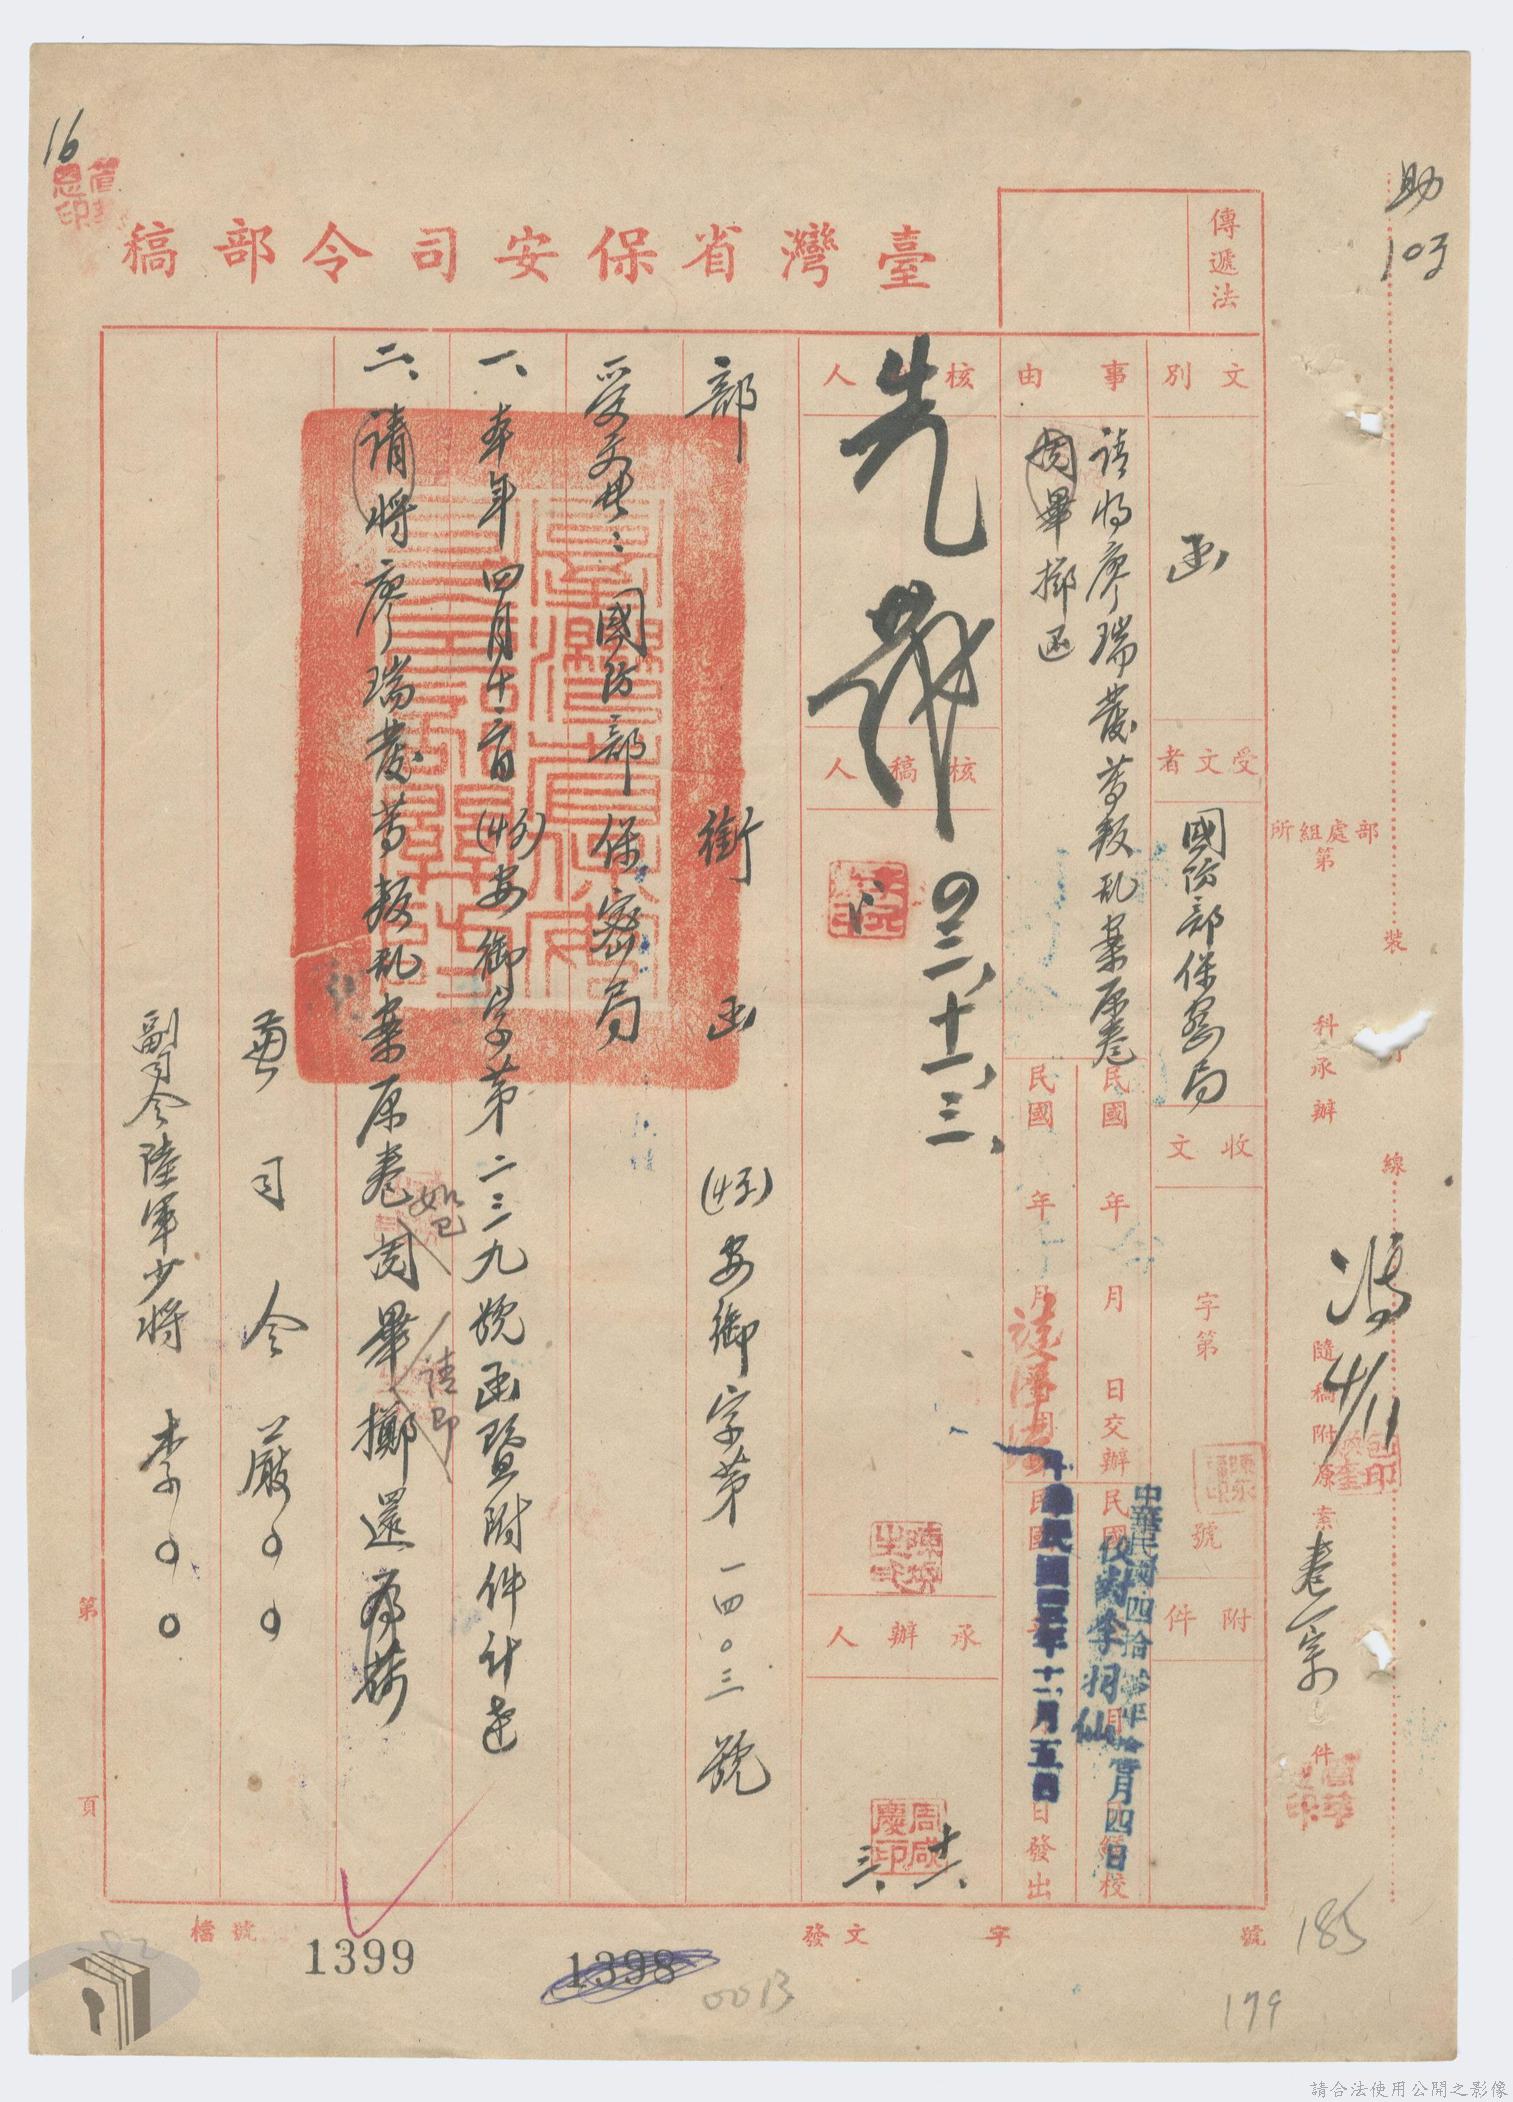 臺灣省保安司令部稿
傳遞法
文別
函
受文者
國防部保密局
收文
字第
號
附件
事由
請將廖瑞發等叛乱案原卷
閱畢擲還
民國 年 月 日交辦
民國 年 月
民國
日發出
校
中華民國四拾
校對李
月四日
十一月五日
核 人
先發
四三、十一、三、
核稿人
承辦人
十一、
三、
周咸慶印
部銜函
(43)安御字第一四〇三號
受文者:國防部保密局
一、本年四月十二日(43)安御字第二三九號函暨附件計達
二、請將廖瑞發等叛乱案原卷閱畢擲還為荷
如已
請即
兼司令嚴〇〇
副司令陸軍少將李〇〇
部處組所
第
科承辦
隨稿附原案卷一宗
件
裝
線
4/11
助
103
16
第
頁
檔號
發文
字
號
1399
1398
0013
185
179
請合法使用公開之影像